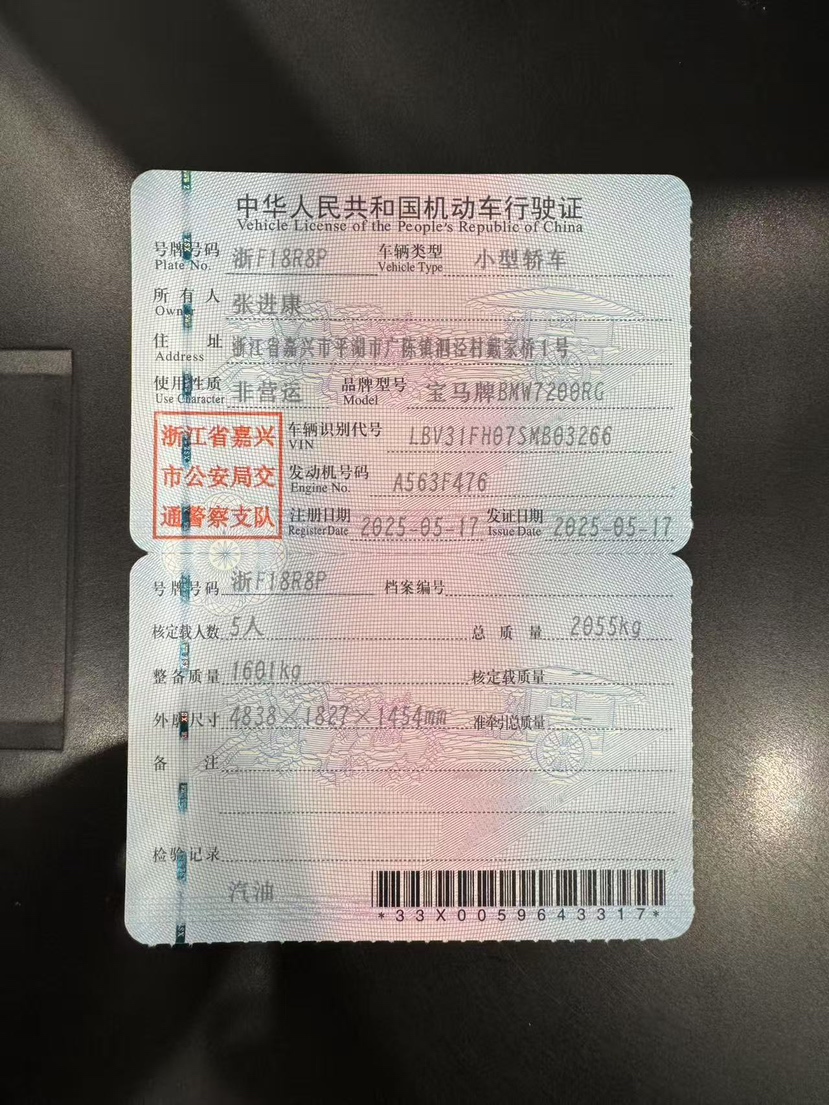 中华人民共和国机动车行驶证
Vehicle License of the People's Republic of China
号牌号码 浙F18R8P 车辆类型 小型轿车
Plate No. Vehicle Type
所有人 张进康
Owner
住址 浙江省嘉兴市平湖市广陈镇泗泾村戴家桥1号
Address
使用性质 非营运 品牌型号 宝马牌BMW7200RG
Use Character Model
浙江省嘉兴
市公安局交
通警察支队
车辆识别代号 LBV31FH07SMB03266
VIN
发动机号码 A563F476
Engine No.
注册日期 2025-05-17 发证日期 2025-05-17
Register Date Issue Date
号牌号码 浙F18R8P 档案编号
核定载人数 5人 总质量 2055kg
整备质量 1601kg 核定载质量 --
外廓尺寸 4838×1827×1454mm 准牵引总质量 --
备注
检验记录
汽油
*33X0059643317*